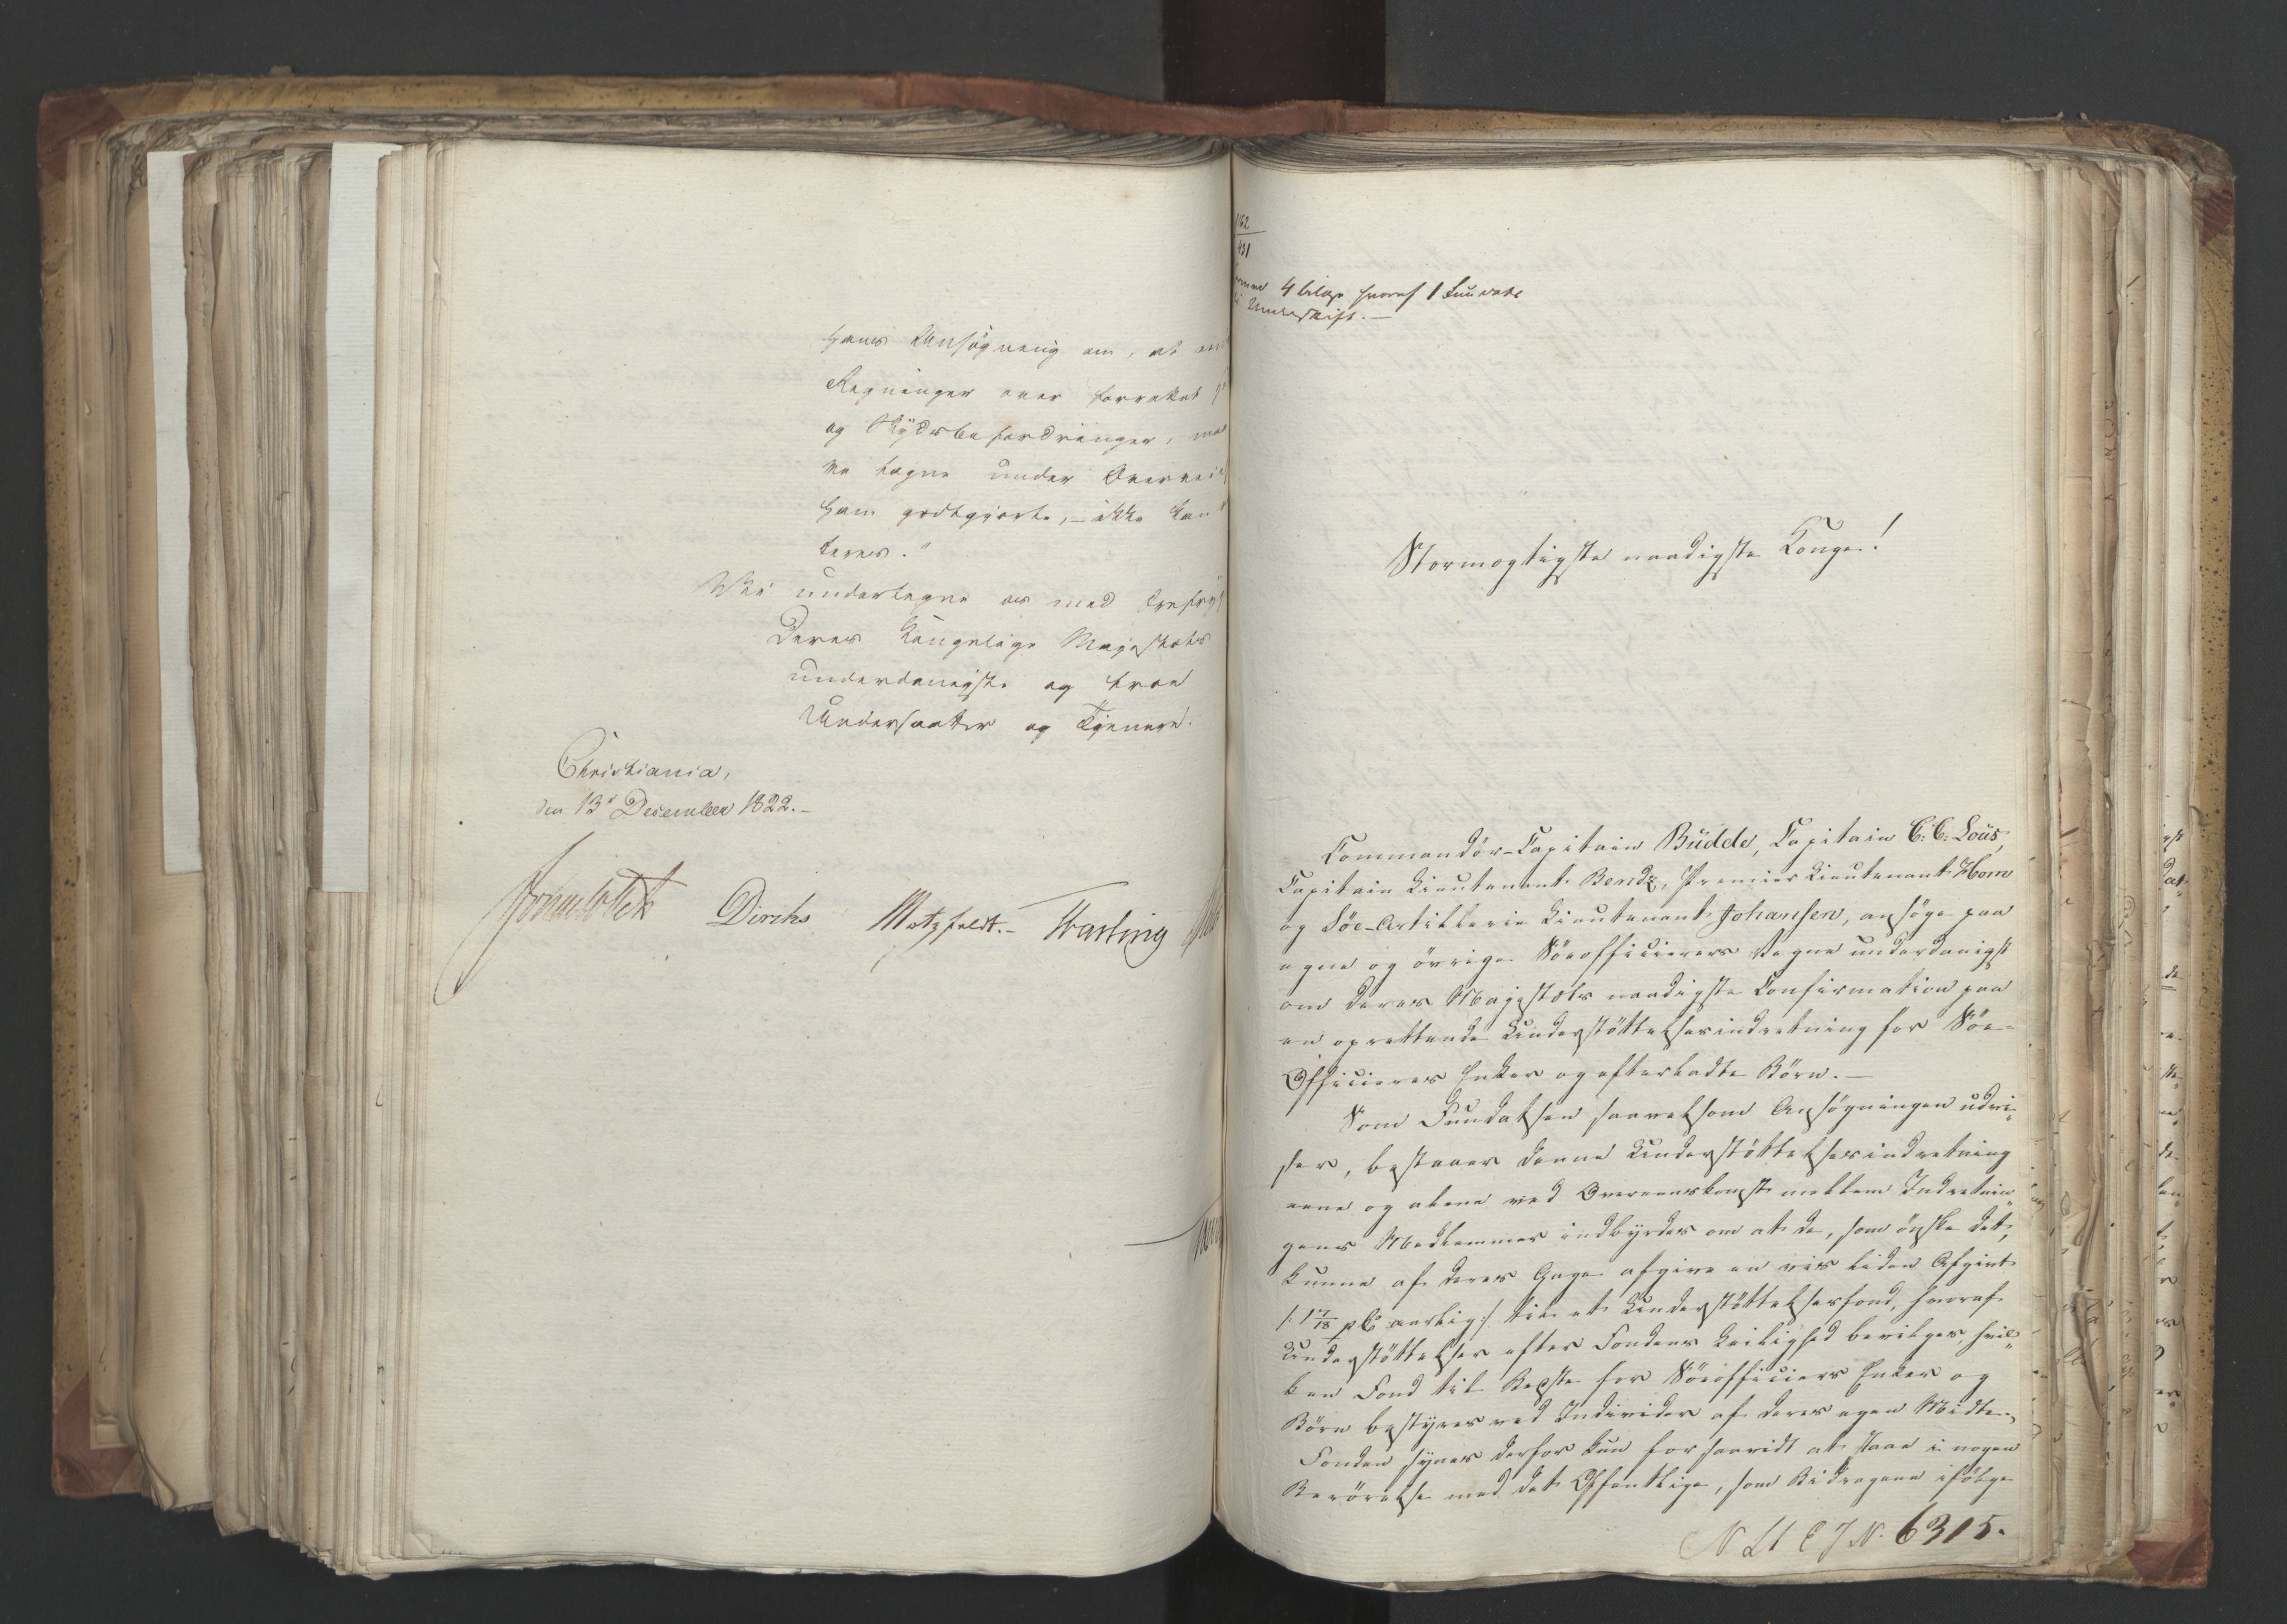 hans Ansøgning om, at
Regninger over forrettet
og Skydsbefordringer, maa
tagne under Overvei
ham godtgjorte, – ikke kan
teres."
Vi undertegne os med
Deres Kongelige Majestæts
underdanigste og troe
Undersaatter og Tjenere.
Christiania,
den 13de December 1822.–
Diriks Motzfeldt.– Fasting
162
431
4 bilag hvoraf 1 Fundats
i Underskift.–
Stormægtigste naadigste Konge!
Commandør-Capitain Büdde, Capitain C: C: Loüs,
Capitain Lieutenant Bendz, Premier Lieutenant Horn
og Søe-Artillerie Lieutenant Johansen, ansøge paa
egne og øvrige Søeofficierers Vegne underdanigst
om Deres Majestæts naadigste Confirmation paa
en oprettende Understøttelsesindretning for Søe-
Officierers Enker og efterladte Børn.–
Som Fundatsen saavelsom Ansøgningen udvi-
ser, bestaaer denne Understøttelsesindretning
ene og alene ved Overeenskomst mellem Indretnin-
gens Medlemmer indbyrdes om at de, som ønske det,
kunne af deres Gage afgive en vis liden Afgivt
/:1 7/18 pC: aarlig:/ til et Understøttelsesfond, hvoraf
Understøttelser efter Fondens Leilighed bevilges, hvil-
ken Fond til Bedste for Søeofficiers Enker og
Børn bestyres ved Individer af deres egen Midte.
Fonden synes derfor kun forsaavidt at staae i nogen
Berørelse med det Offentlige, som Bidragene ifølge
6315.